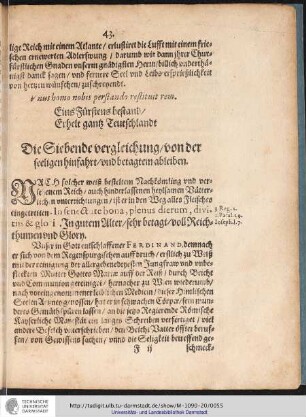 43.
lige Reich mit einem Atlante / erlustiret die Lufft mit einem frie-
schen ernewerten Adlerschwung / darumb wir dann ihrer Chur-
fürstlichen Gnaden unserm gnädigsten Herrn / billich underthä-
nigst danck sagen / und fernere Seel und Leibs ersprießlichkeit
von hertzen wünschen / zuschreyendt.
Vnus homo nobis perstando restituit rem.
Eins Fürstens bestand /
Erhelt gantz Teutschlandt
Die Siebende vergleichung / von der
seeligen hinfahrt / und betagtem ableiben.
NACH solcher weiß bestelten Nachkömling und ver-
einem Reich / auch hinderlassenen heylsamen Vätter-
lichen underrichtungen / ist er in den Weg alles Fleisches
eingetretten. In senectute bona, plenus dierum, divi-
tiis & gloria. In gutem Alter / sehr betagt / voll Reich-
thumen und Glory.
Unser in Gott entschlaffener FERDINAND, demnach
er sich von dem Regenspurgischen auffbruch / erstlich zu
mit der einigung der allergebenedeytesten Jungfraw und unbe-
fleckten Mutter Gottes Mariæ auff der Reiß / durch Beicht
und Communion gereiniget / hernacher zu Wien widerumb /
nach
Seelen Artzney genossen / hat er in schwachen Cörper / sein mun-
ders Gemüth spüren lassen / an die jetzo Regierende Römische
Kayserliche Mayestät ein langes Schreiben verfertiget / viel
andere Befelch underschrieben / den Beicht Vatter öffter beruf-
fen / von Gewissens sachen / unnd die Seligkeit betreffend ge-
F ij
schmeck-
TECHNISCHE
UNIVERSITÄT
DARMSTADT
http://tudigit.ulb.tu-darmstadt.de/show/M-1090-20/0055
Universitäts- und Landesbibliothek Darmstadt